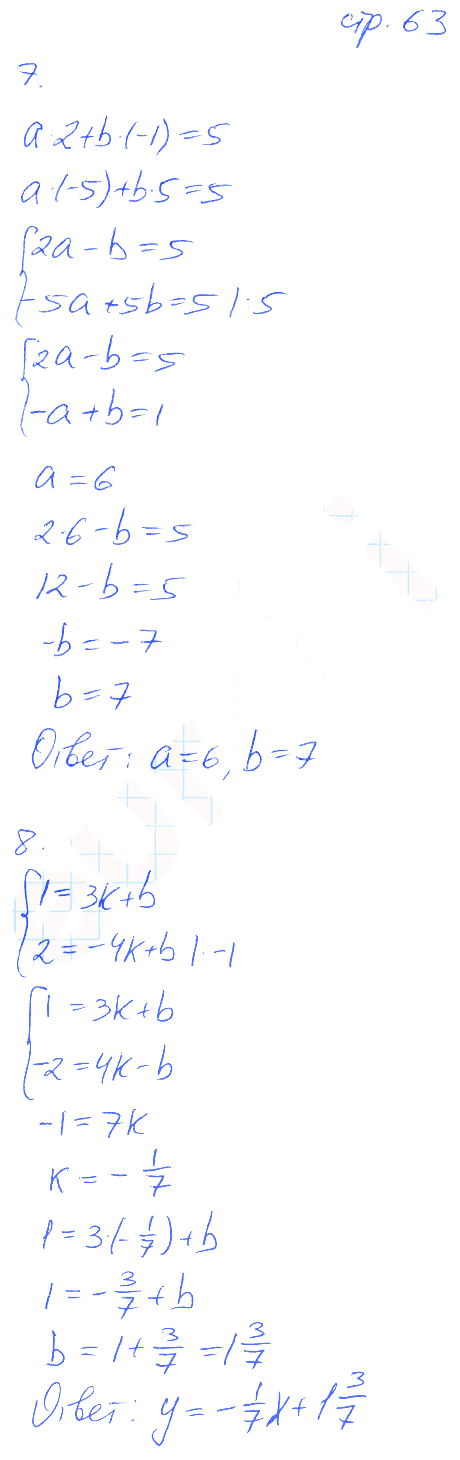 стр. 63
7.
a·2+b·(-1)=5
a·(-5)+b·5=5
{2a-b=5
-5a+5b=5 |·5
{2a-b=5
-a+b=1
a=6
2·6-b=5
12-b=5
-b=-7
b=7
Ответ: a=6, b=7
8.
{1=3k+b
2=-4k+b |·-1
{1=3k+b
-2=4k-b
-1=7k
k=-1/7
1=3·(-1/7)+b
1=-3/7+b
b=1+3/7=1 3/7
Ответ: y=-1/7x+1 3/7